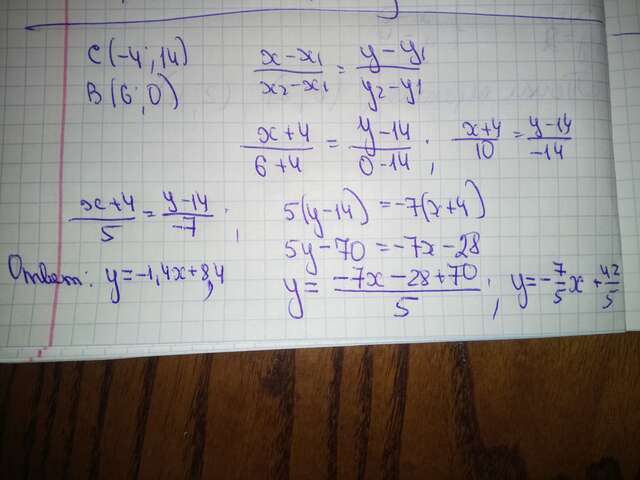 C(-4; 14) (x-x₁)/(x₂-x₁) = (y-y₁)/(y₂-y₁)
B(6; 0)
(x+4)/(6+4) = (y-14)/(0-14); (x+4)/10 = (y-14)/-14
(x+4)/5 = (y-14)/-7; 5(y-14) = -7(x+4)
5y-70 = -7x-28
y = (-7x-28+70)/5; y = -7/5x + 42/5
Ответ: y=-1,4x+84